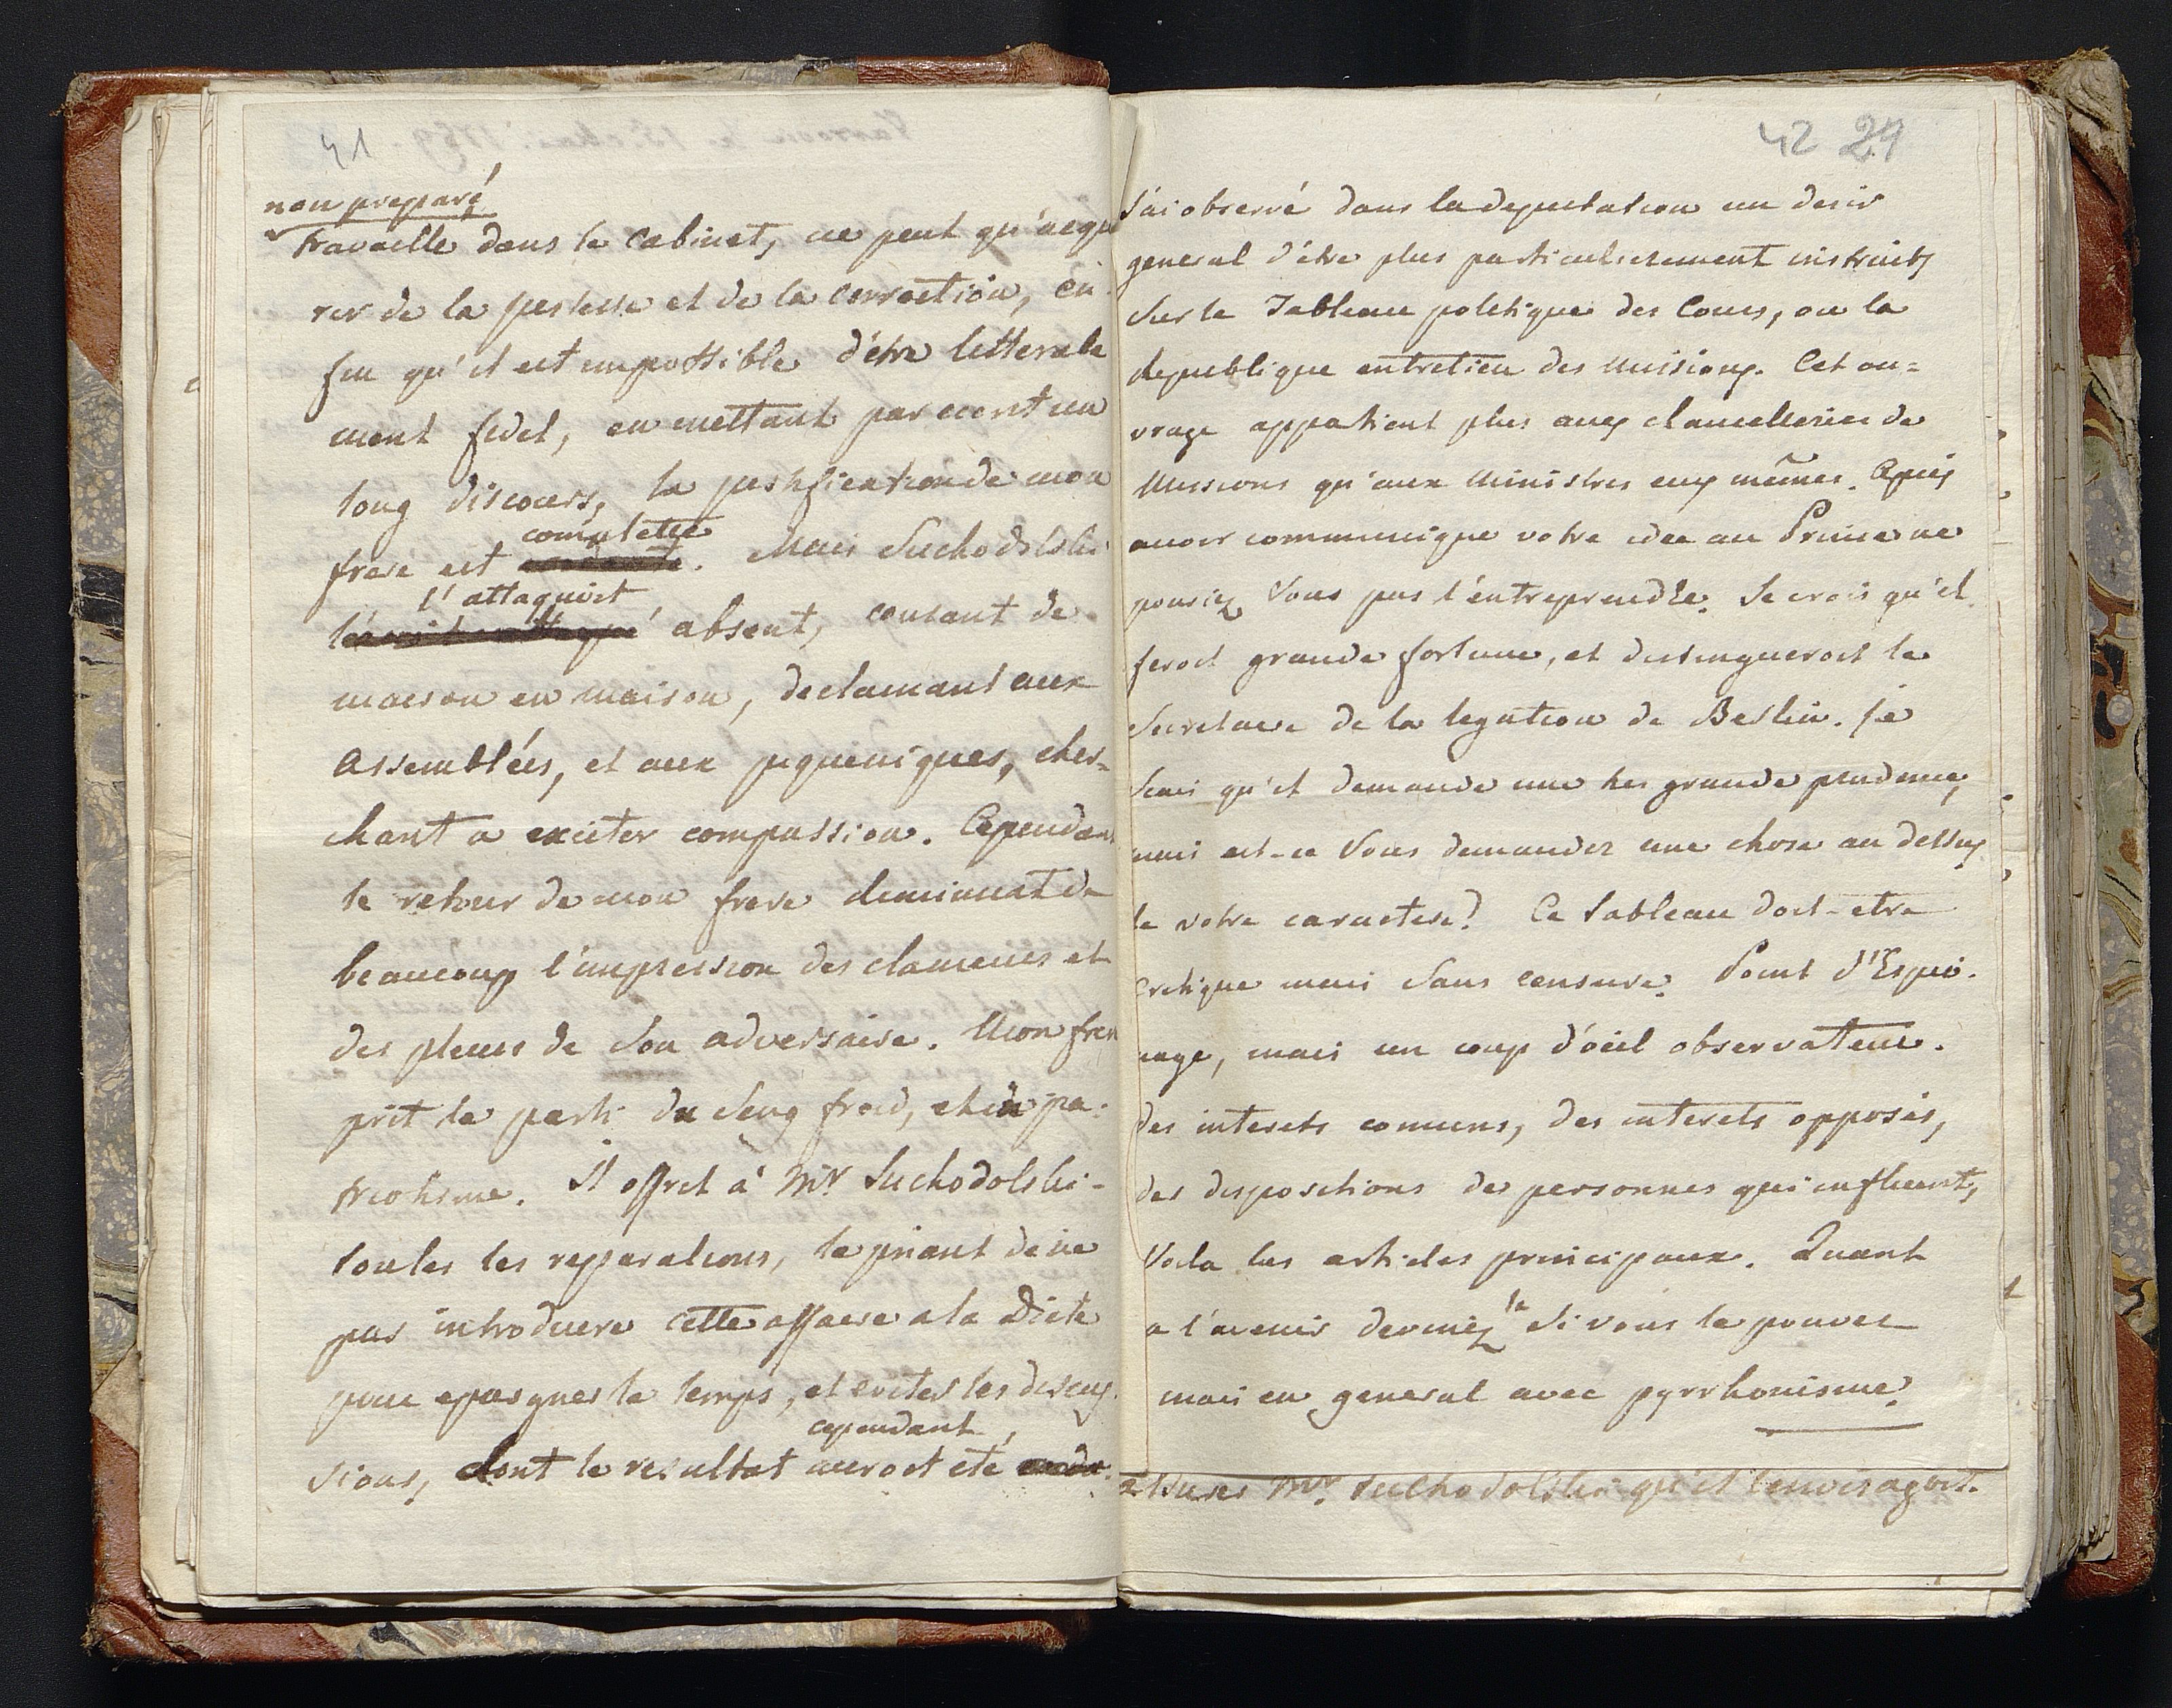 41
non preparé
travaille dans le Cabinet, ne peut qu'acque
rir de la justesse et de la correction, en
fin qu'il est impossible d'etre litterale
ment fidel, en mettant par ecrit un
long discours, la justification de mon
complette
frere est. Mais Suchodolski
l'attaquoit
absent, courant de
maison en maison, declamant aux
Assemblées, et aux piqueniques, cher=
chant a exciter compassion. Cependant
le retour de mon frere diminuat de
beaucoup l'impression des clameurs et
des pleurs de son adversaire. Mon frere
prit le parti du seng froid, et du pa:
triotisme. Il offrit à Mr Suchodolski
toutes les reparations, le priant de ne
pas introduire cette affaire a la Diete
pour epargner le temps, et eviter les discus
cependant
sions, dont le resultat auroit eté
42 24
J'ai observé dans la deputation un desir
general d'étre plus particulierement instruits
sur le Tableau politique des Cours, ou la
Republique entretien des Missions. Cet ou=
vrage appatient plus aux chancelleries de
Missions qu'aux Ministres eux mêmes. Apres
avoir communique votre idée au Prince ne
pouriez Vous pas l'entreprendre. Je crois qu'il
feroit grande fortune, et distingueroit le
Secretaire de la legation de Berlin. Je
scai qu'il demande une tres grande prudence,
mais est-ce Vous demander une chose au dessus
de votre caractere? Ce tableau doit-etre
critique mais sans censure. Point d'Espio-
nage, mais un coup d'oeil observateur.
des interets comuns, des interets opposés,
des dispositions des personnes qui influent,
Voila les articles principaux. Quant
a l'avenir devinez le si vous le pouvez
mais en general avec pyrrhonisme.
Mr. Suchodolski qu'il l'envisagoit.